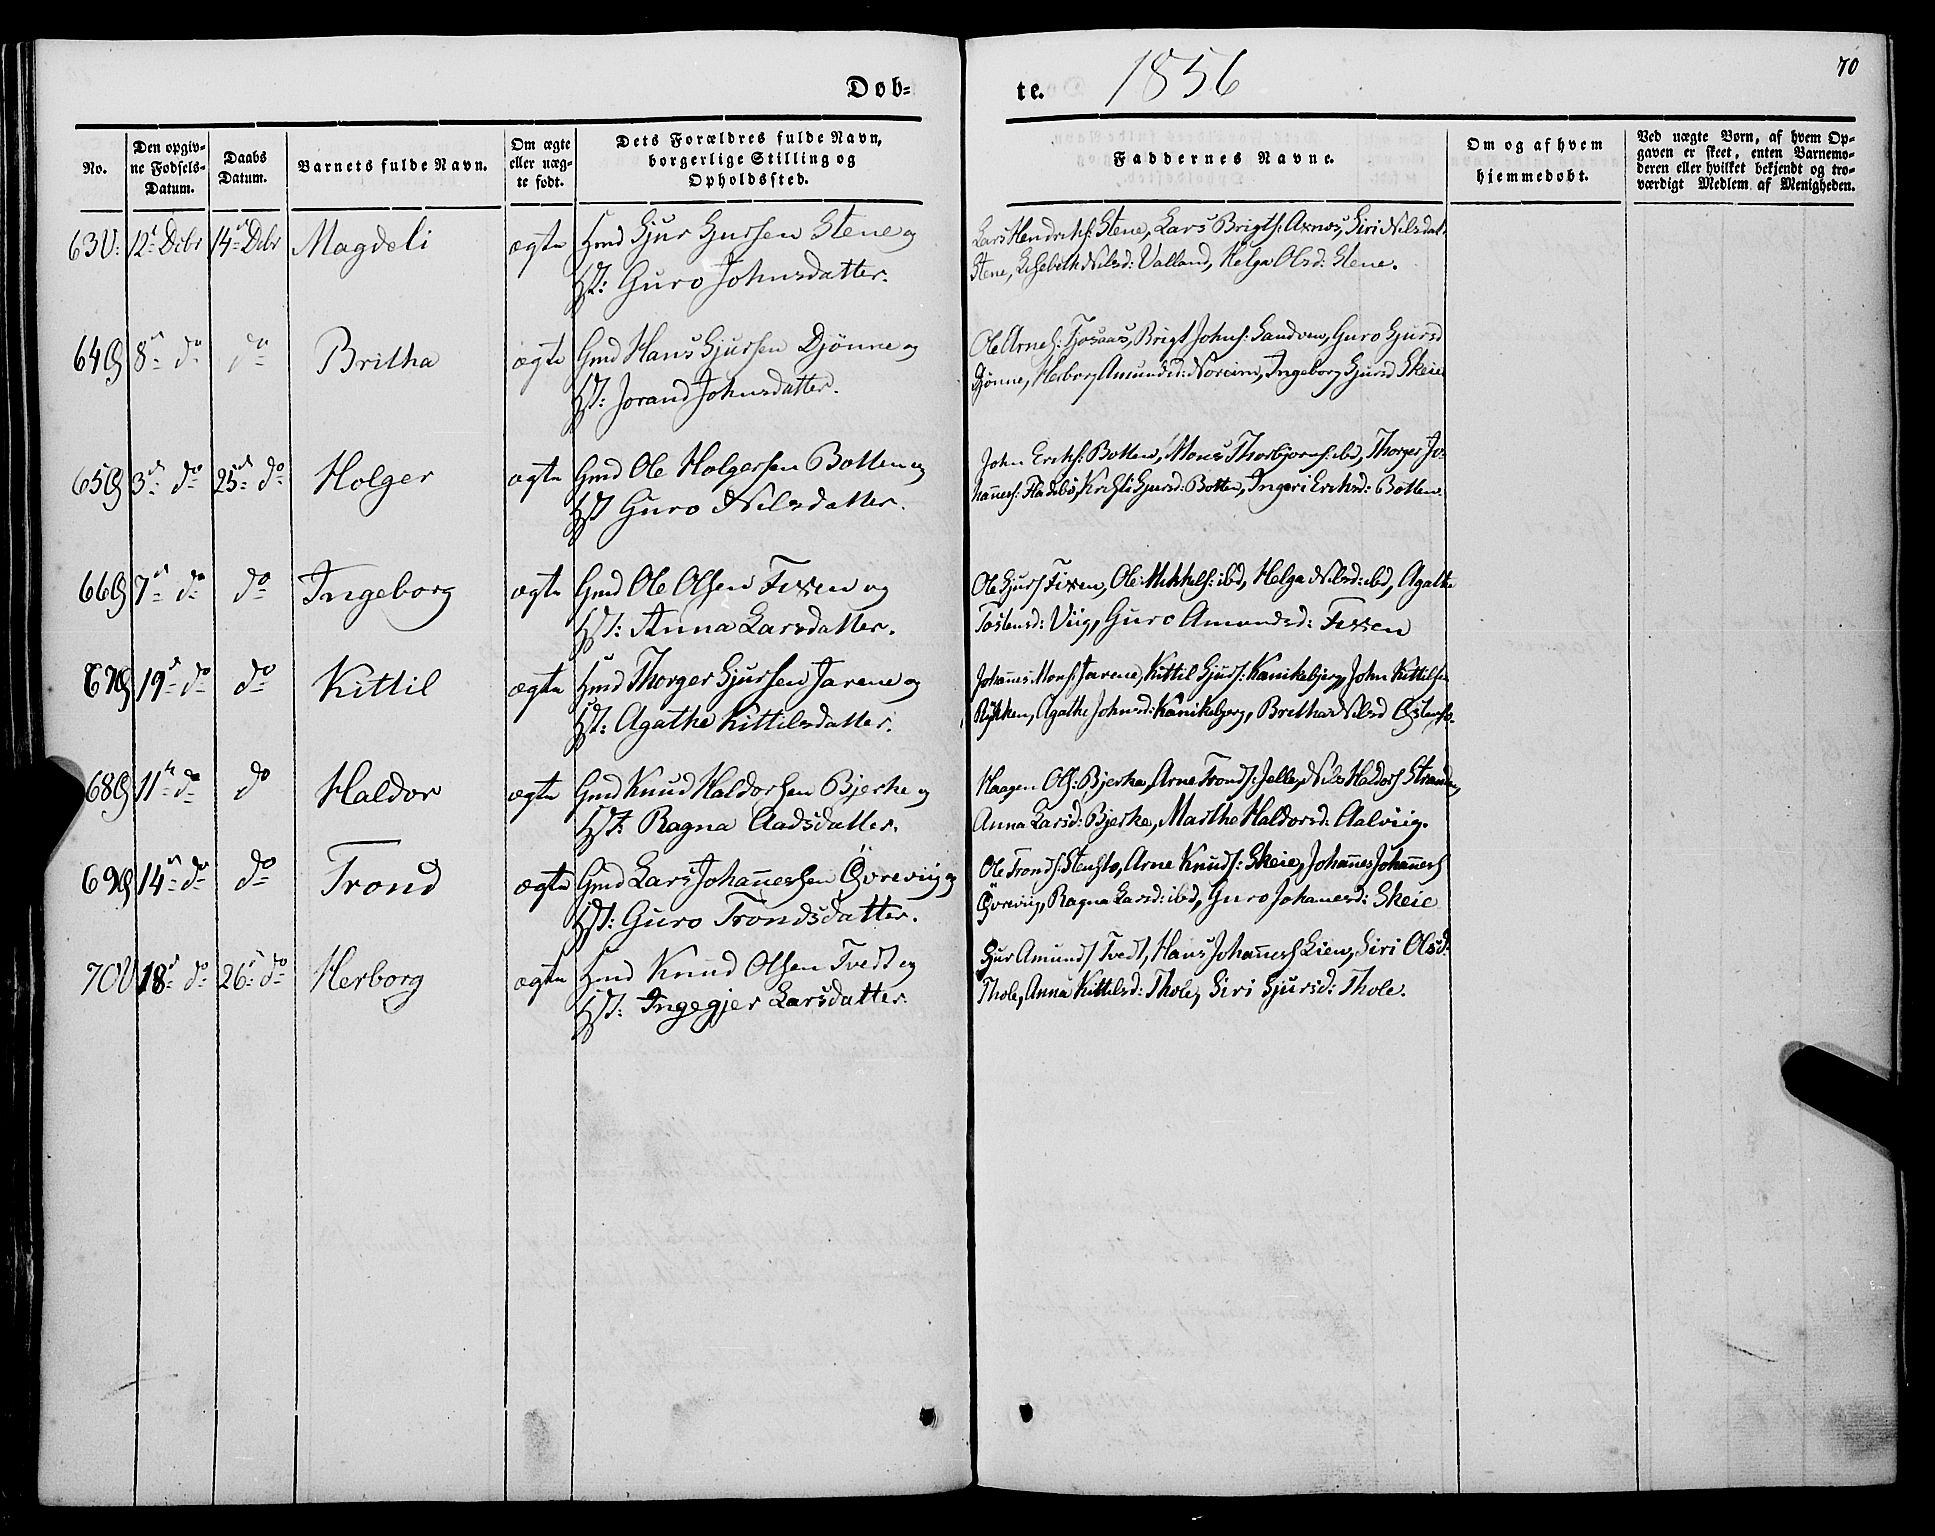 Døb-
te.
1856
70
No.
Den opgiv-
ne Fødsels-
Datum.
Daabs
Datum.
Barnets fulde Navn.
Om ægte
eller uæg-
te født.
Dets Forældres fulde Navn,
borgerlige Stilling og
Opholdssted.
Faddernes Navne.
Om og af hvem
hjemmedøbt.
Ved uægte Børn, af hvem Op-
gaven er skeet, enten Barnemo-
deren eller hvilket bekjendt og tro-
værdigt Medlem af Menigheden.
63 U: 12t Debr 14de Debr Magdeli ægte Hmd Sjur Sjursen Stene og
Hst: Guro Johnsdatter.
Lars Hendriks: Stene, Lars Brigts: Axnos, Siri Nilsdat:
Stene, Lisebeth Nilsd: Valland, Helga Olsd: Stene.
64 G 8de do do Britha ægte Gmd Hans Sjursen Djönne og
Hst: Jorand Johnsdatter.
Ole Arnes: Fosaas, Brigt Johns: Sandven, Guro Sjursd
Djönne, Herborg Amundsd: Noreim, Ingeborg Sjursd Skeie
65 G 3de do 25de do Holger ægte Gmd Ole Holgersen Botten og
Hst Guro Nilsdatter.
John Eriks: Botten, Mons Thorbjorns: ibd, Thorger Jo-
hannes: Fladebö, Krisli Sjursd: Botten, Ingeri Eriksd: Botten
66 G 7de do do Ingeborg ægte Gmd Ole Olsen Fixen og
Hst: Anna Larsdatter.
Ole Sjurs Fixen, Ole Mikkels: ibd, Helga Nilsd: ibd, Agathe
Tostensd: Viig, Guro Amundsd: Fixen
67 G 19de do do Kittil ægte Hmd Thorger Sjursen Jarene og
Hst: Agathe Kittilsdatter.
Johannes Mons: Jarene, Kittil Sjurs: Kanikebjerg, John Kittilsen
Rykken, Agathe Johnsd: Kanikebjerg, Britha Nilsd Östensö.
68 G 11te do do Haldor ægte Gmd Knud Haldorsen Bjerke og
Hst: Ragna Aadsdatter.
Haagen Ols: Bjerke, Arne Tronds: Jelle, Nils Haldors Stranden,
Anna Larsd: Bjerke, Marthe Haldorsd: Aalviig.
69 G 14de do do Trond ægte Gmd Lars Johannessen Övreviig og
Hst: Guro Trondsdatter.
Ole Tronds: Stenstö, Arne Knuds: Skeie, Johannes Johanness
Övreviig, Ragna Larsd: ibd, Guro Johanesd: Skeie
70 U 18de do 26de do Herborg ægte Hmd Knud Olsen Tvedt og
Hst: Ingegjer Larsdatter
Sjur Amunds Tvedt, Hans Johanness Lien, Siri Olsd:
Thole, Anna Kittilsd: Thole, Siri Sjursd: Thole.